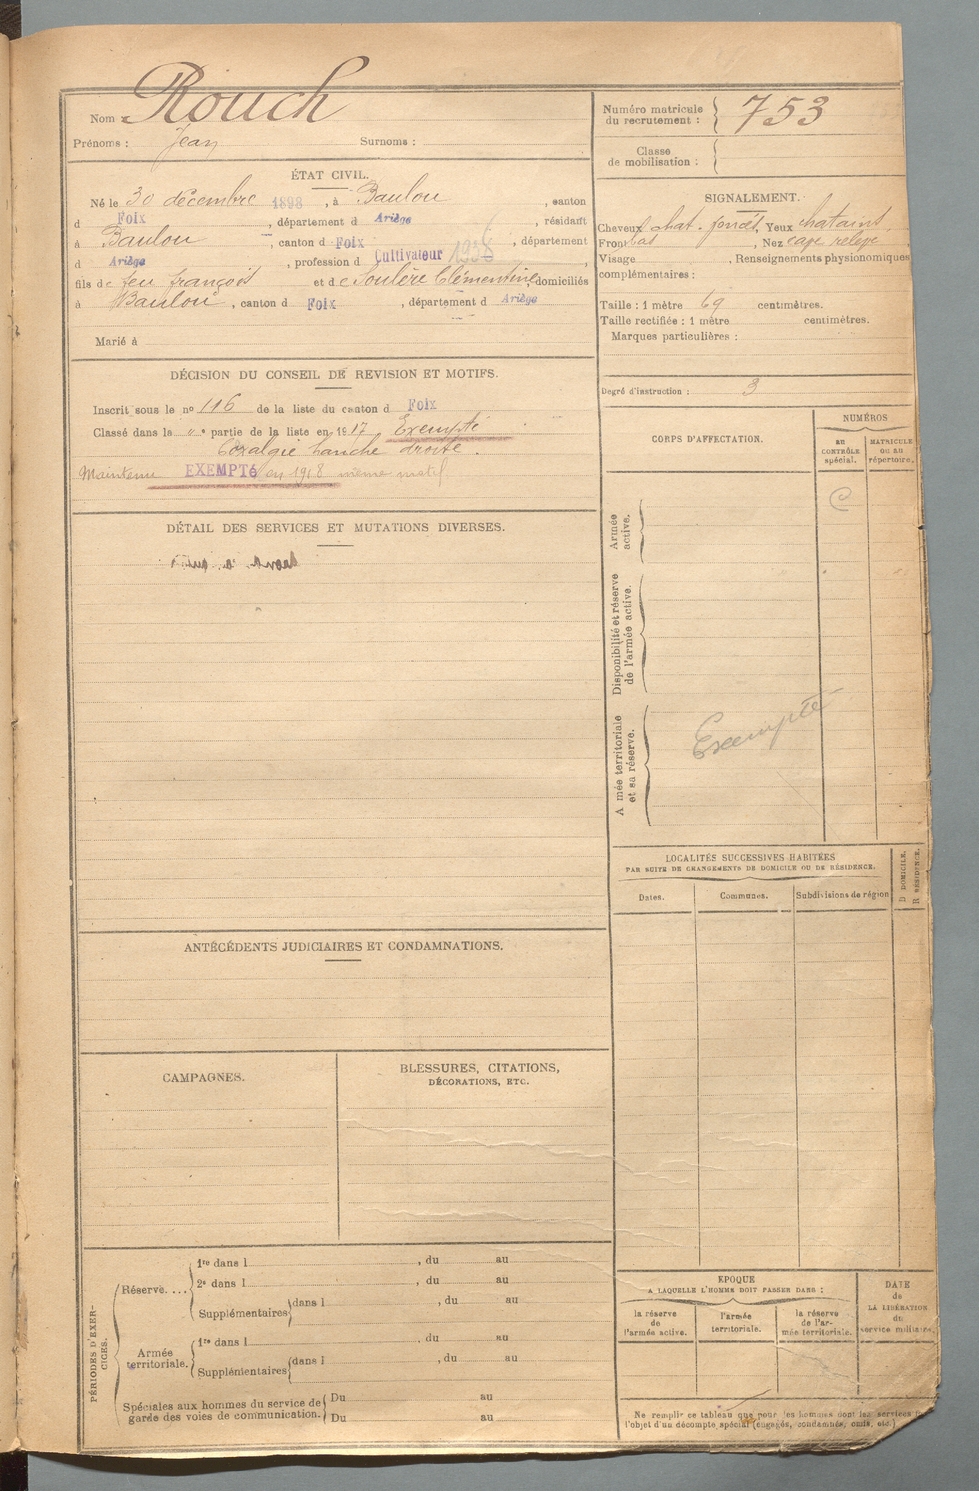 Nom Rouch
Prénoms : Jean Surnoms :
Numéro matricule du recrutement : 753
Classe de mobilisation :
ÉTAT CIVIL.
Né le 30 décembre 1898, à Baulou, canton
d Foix, département d Ariège, résidant
à Baulou, canton d Foix, département
d Ariège, profession d Cultivateur
fils de feu françois et de Soulère Clémentine, domiciliés
à Baulou, canton d Foix, département d Ariège
Marié à
SIGNALEMENT.
Cheveux chat. foncés, Yeux chatains,
Front bas, Nez cave relevé,
Visage , Renseignements physionomiques
complémentaires :
Taille : 1 mètre 69 centimètres.
Taille rectifiée : 1 mètre centimètres.
Marques particulières :
Degré d'instruction : 3
DÉCISION DU CONSEIL DE REVISION ET MOTIFS.
Inscrit sous le no 116 de la liste du canton d Foix
Classé dans la " e partie de la liste en 1917 Exempté
Coxalgie hanche droite.
Maintenu EXEMPTé en 1918 même motif
CORPS D'AFFECTATION.
NUMÉROS
au CONTRÔLE spécial.
MATRICULE ou au répertoire.
Armée active.
Disponibilité et réserve de l'armée active.
A mée territoriale et sa réserve.
Exempté
DÉTAIL DES SERVICES ET MUTATIONS DIVERSES.
LOCALITÉS SUCCESSIVES HABITÉES
PAR SUITE DE CHANGEMENTS DE DOMICILE OU DE RÉSIDENCE.
Dates. Communes. Subdivisions de région
D DOMICILE.
R RÉSIDENCE.
ANTÉCÉDENTS JUDICIAIRES ET CONDAMNATIONS.
CAMPAGNES.
BLESSURES, CITATIONS,
DÉCORATIONS, ETC.
PÉRIODES D'EXERCICES.
Réserve. ...
1re dans l , du au
2e dans l , du au
Supplémentaires dans l , du au
Armée territoriale.
1re dans l , du au
Supplémentaires dans l , du au
Spéciales aux hommes du service de Du au
garde des voies de communication. Du au
ÉPOQUE
A LAQUELLE L'HOMME DOIT PASSER DANS :
la réserve de l'armée active.
l'armée territoriale.
la réserve de l'armée territoriale.
DATE de LA LIBÉRATION du service militaire.
Ne remplir ce tableau que pour les hommes dont les services
l'objet d'un décompte spécial (engagés, condamnés, omis, etc.)